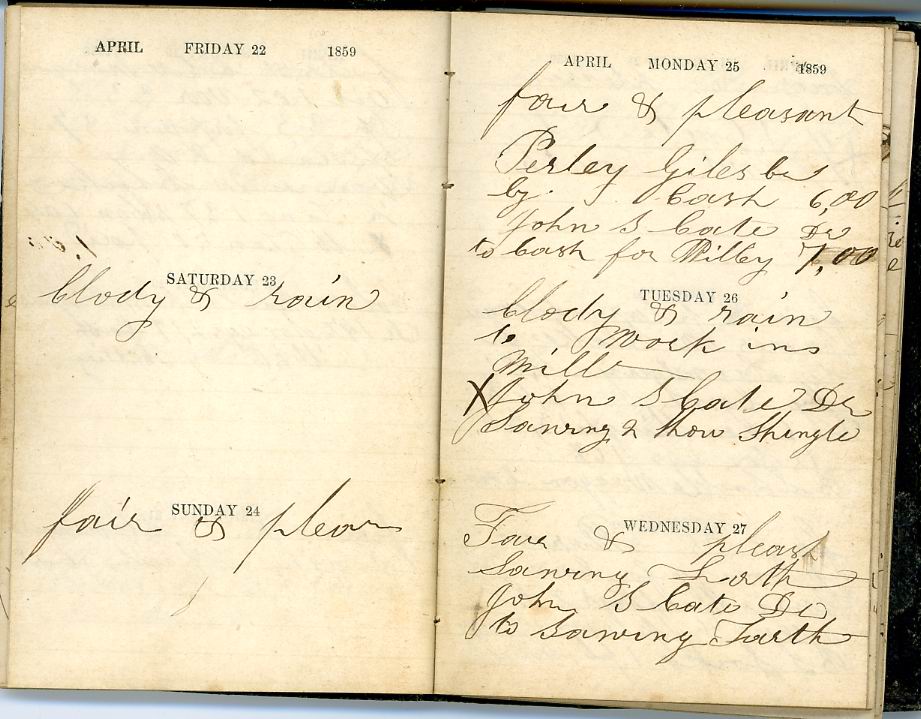 APRIL FRIDAY 22 1859
SATURDAY 23
Clody & rain
SUNDAY 24
fair & pleas
APRIL MONDAY 25 1859
fair & pleasant
Perley Giles
by Cash 6,00
John S Cate Dr
to Cash for Willey 7,00
TUESDAY 26
Clody & rain
to Work in
Mill
X John S Cate Dr
Sawing 2 thou Shingle
WEDNESDAY 27
Fair & pleast
Sawing
John S Cate Dr
to Sawing